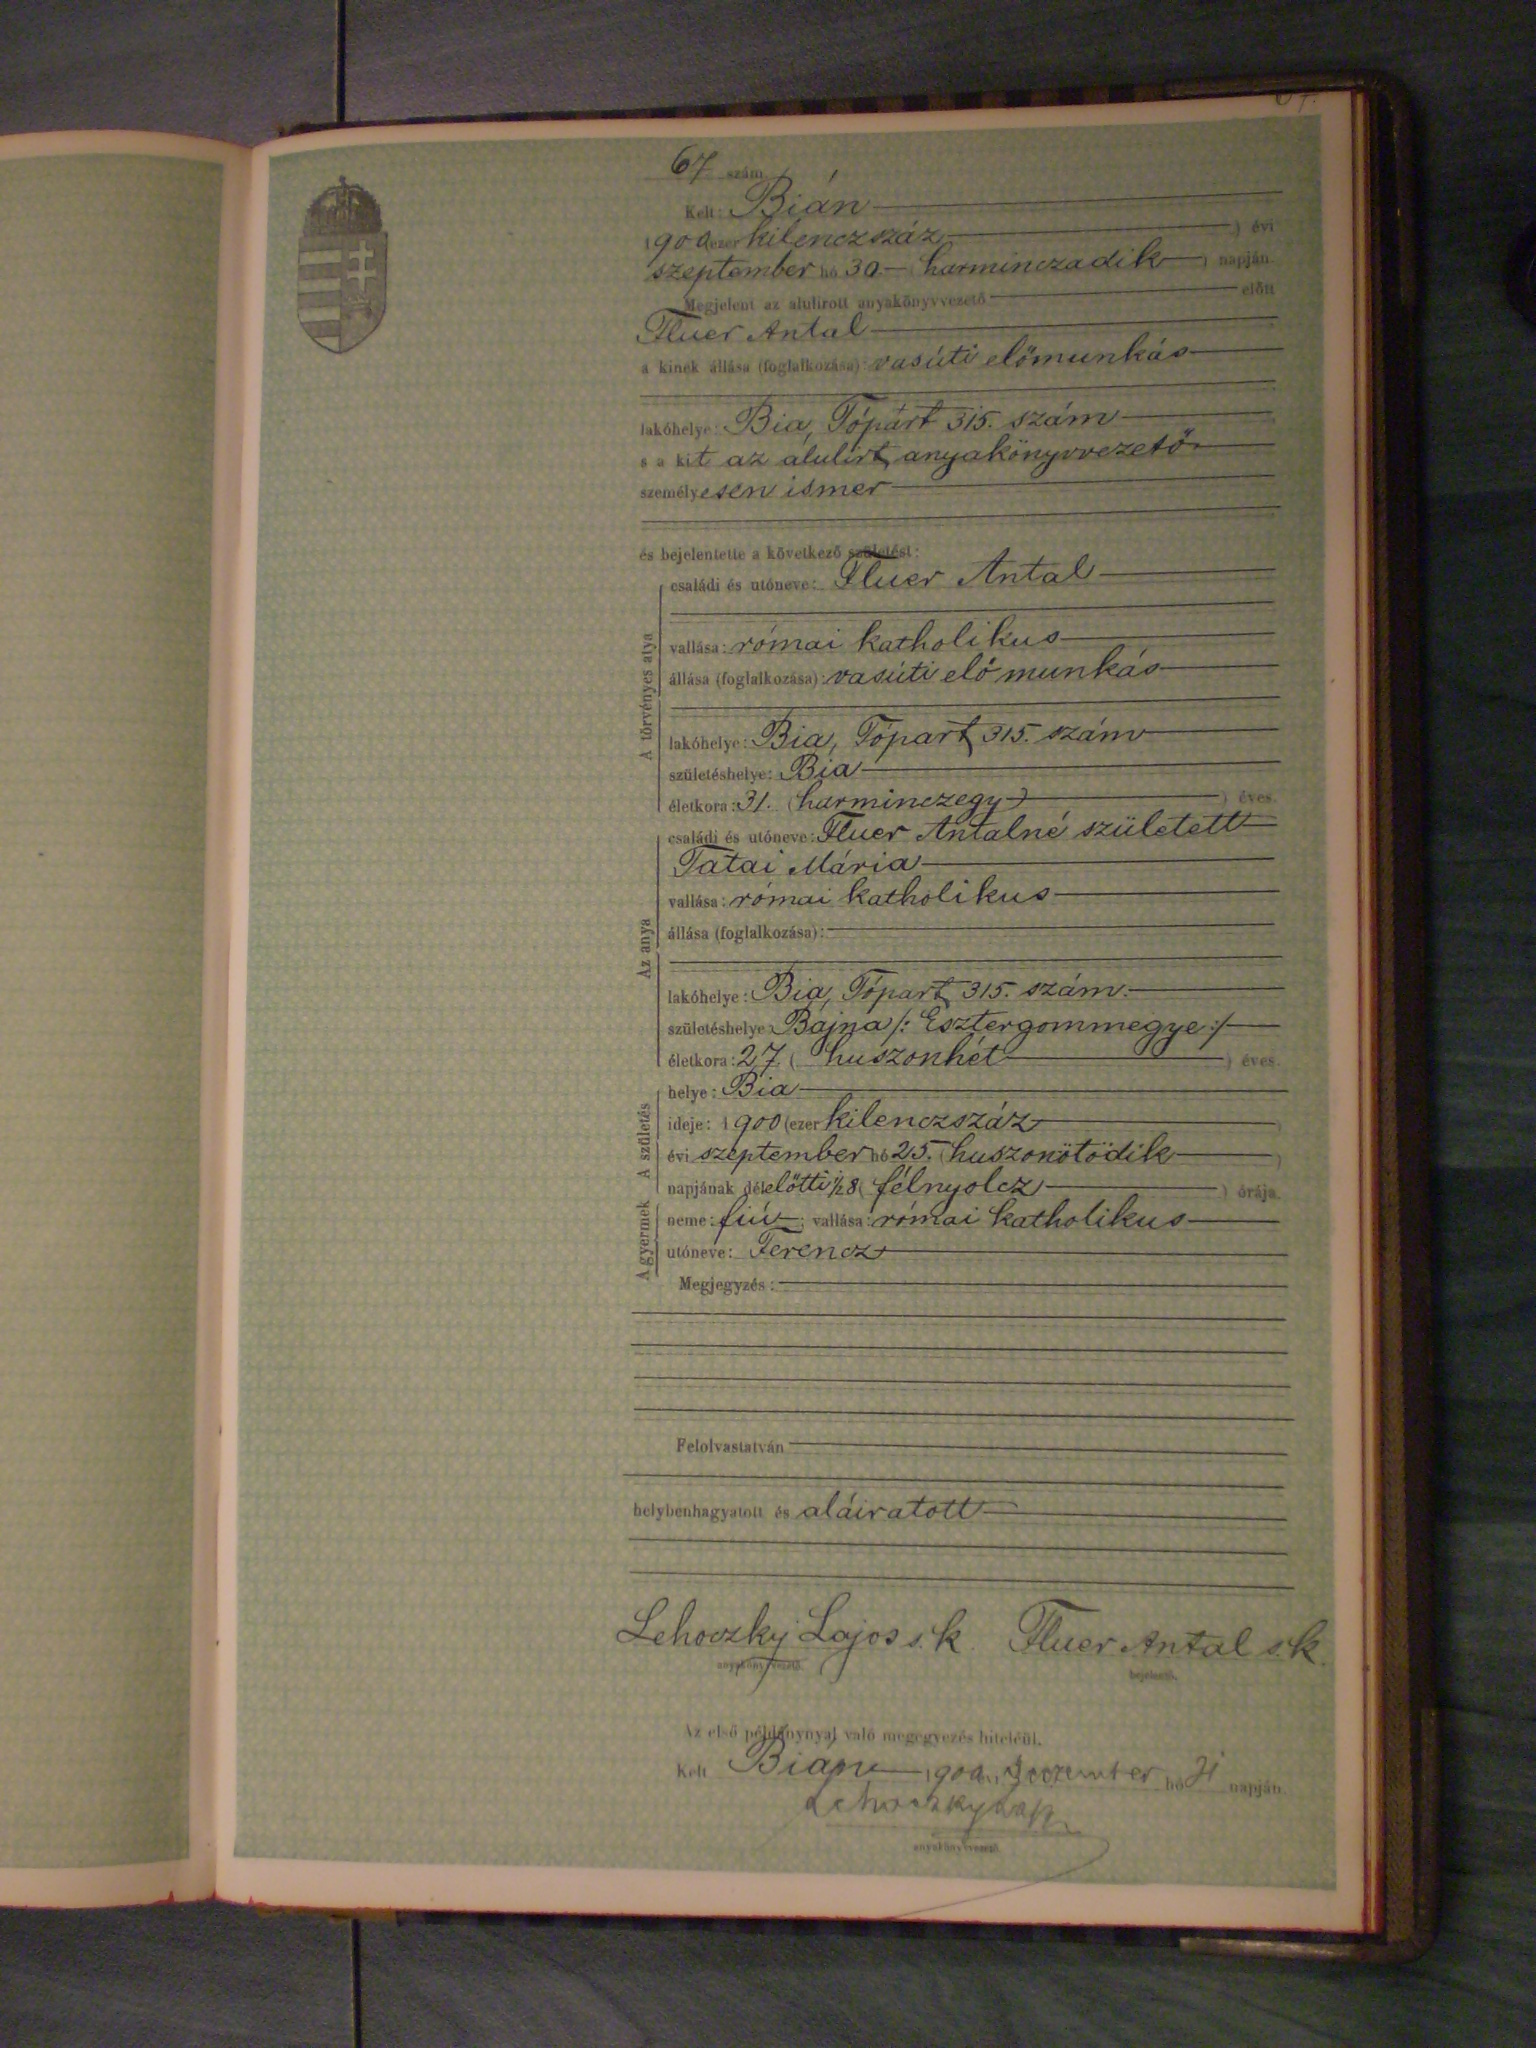 67 szám
Kelt: Bián
1900 ezer kilenczszáz ) évi
szeptember hó 30. ( harminczadik ) napján.
Megjelent az alulirott anyakönyvvezető előtt
Fluer Antal
a kinek állása (foglalkozása): vasúti előmunkás
lakóhelye: Bia, Tópart 315. szám
s a kit az alulirt anyakönyvvezető
személyesen ismer
és bejelentette a következő születést:
A törvényes atya
családi és utóneve: Fluer Antal
vallása: római katholikus
állása (foglalkozása): vasúti előmunkás
lakóhelye: Bia, Tópart 315. szám
születéshelye: Bia
életkora: 31. (harminczegy) ) éves.
Az anya
családi és utóneve: Fluer Antalné született
Tatai Mária
vallása: római katholikus
állása (foglalkozása):
lakóhelye: Bia, Tópart 315. szám.
születéshelye: Bajna /: Esztergommegye :/
életkora: 27 ( huszonhét ) éves.
A születés
helye: Bia
ideje: 1900 (ezer kilenczszáz )
évi szeptember hó 25. (huszonötödik )
napjának délelőtti ½8 ( félnyolcz ) órája.
A gyermek
neme: fiú; vallása: római katholikus
utóneve: Ferencz
Megjegyzés:
Felolvastatván
helybenhagyatott és aláiratott
Lehoczky Lajos s.k. Fluer Antal s.k.
anyakönyvvezető. bejelentő.
Az első példánynyal való megegyezés hiteléül.
Kelt Bián 1900. deczember hó 31 napján.
Lehoczky Lajos
anyakönyvvezető.